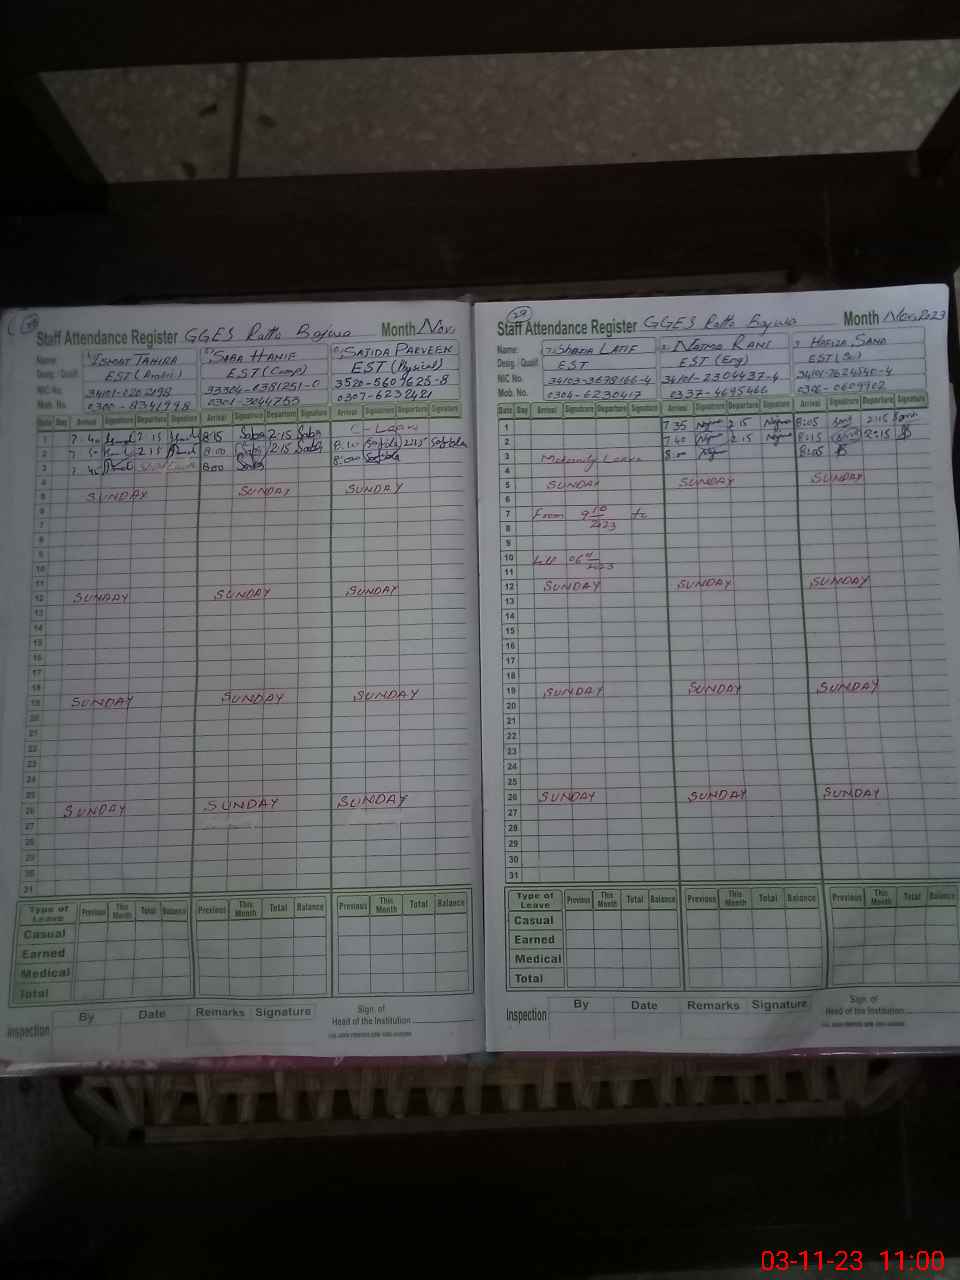 Staff Attendance Register GGES Ratta Bajwa Month Nov.
Name: ISMAT TAHIRA SARA HANIF SAJIDA PARVEEN
Desig. / Qualif. EST (Arabic) EST (Comp) EST (Physical)
NIC No.
Mob. No. 0307-6232421
Date Day Arrival Signature Departure Signature Arrival Signature Departure Signature Arrival Signature Departure Signature
1 7:40 2:15 8:15 Saba 2:15 Saba C-Leave
2 2:15 8:00 Saba 2:15 Saba 8:10 Sajida 2:15 Sajida
3 8:00 Saba 8:00 Sajida
4
5 SUNDAY SUNDAY SUNDAY
6
7
8
9
10
11
12 SUNDAY SUNDAY SUNDAY
13
14
15
16
17
18
19 SUNDAY SUNDAY SUNDAY
20
21
22
23
24
25
26 SUNDAY SUNDAY SUNDAY
27
28
29
30
31
Type of Leave Previous This Month Total Balance Previous This Month Total Balance Previous This Month Total Balance
Casual
Earned
Medical
Total
Inspection By Date Remarks Signature Sign. of Head of the Institution
29
Staff Attendance Register GGES Ratta Bajwa Month Nov. 2023
Name: LATIF NAJMA RANI HAFIZA SANA
Desig. / Qualif. EST EST (Eng) EST (Sci)
NIC No. 34103-3678166-4 34101-2304437-4
Mob. No. 0304-6230417 0337-4695466
Date Day Arrival Signature Departure Signature Arrival Signature Departure Signature Arrival Signature Departure Signature
1 7:35 2:15 8:05 2:15
2 7:40 2:15 8:15 2:15
3 Maternity Leave 8:00 8:05
4
5 SUNDAY SUNDAY SUNDAY
6
7 From 9/10/2023 to
8
9
10 till 06
11 2023
12 SUNDAY SUNDAY SUNDAY
13
14
15
16
17
18
19 SUNDAY SUNDAY SUNDAY
20
21
22
23
24
25
26 SUNDAY SUNDAY SUNDAY
27
28
29
30
31
Type of Leave Previous This Month Total Balance Previous This Month Total Balance Previous This Month Total Balance
Casual
Earned
Medical
Total
Inspection By Date Remarks Signature Sign. of Head of the Institution
03-11-23 11:00